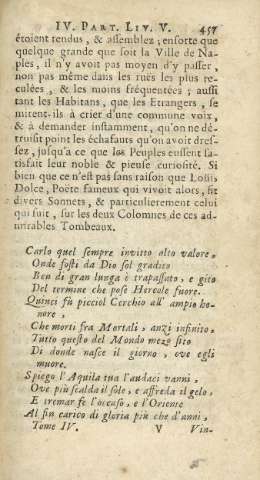 IV. Part. Liv. V. 457
étoient rendus, & assemblez; ensorte que
quelque grande que soit la Ville de Na-
ples, il n'y avoit pas moyen d'y passer,
non pas même dans les ruës les plus re-
culées, & les moins fréquentées; aussi
tant les Habitans, que les Etrangers, se
mirent-ils à crier d'une commune voix,
& à demander instamment, qu'on ne dé-
truisit point les échafauts qu'on avoit dres-
sez, jusqu'a ce que les Peuples eussent sa-
tisfait leur noble & pieuse curiosité. Si
bien que ce n'est pas sans raison que Loüis
Dolce, Poëte fameux qui vivoit alors, fit
divers Sonnets, & particulierement celui
qui suit, sur les deux Colomnes de ces ad-
mirables Tombeaux.
Carlo quel sempre invitto alto valore,
Onde fosti da Dio sol gradito
Ben di gran lunga è trapassato, e gito
Del termine che pose Hercole fuore.
Quinci fù picciol Cerchio all' ampio ho-
nore,
Che morti fra Mortali, anzi infinito,
Tutto questo del Mondo mezo sito
Di donde nasce il giorno, ove egli
muore.
Spiego l'Aquila tua l'audaci vanni,
Ove più scalda il sole, e affreda il gelo,
E tremar fe l'occaso, e l'Oriente
Al fin carico di gloria più che d'anni,
Tome IV. V Vin-